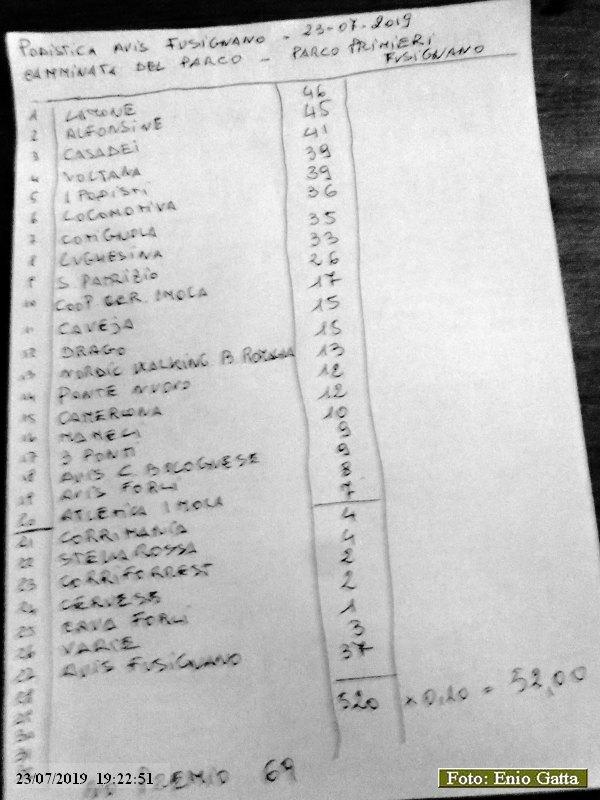 PODISTICA AVIS FUSIGNANO - 23-07-2019
CAMMINATA DEL PARCO - PARCO PRIMIERI
FUSIGNANO
1 LAMONE 46
2 ALFONSINE 45
3 CASADEI 41
4 VOLTANA 39
5 I PODISTI 39
6 LOCOMOTIVA 36
7 COTIGNOLA 35
8 LUGHESINA 33
9 S. PATRIZIO 26
10 COOP CER. IMOLA 17
11 CAVEJA 15
12 DRAGO 15
13 NORDIC WALKING B ROMAGNA 13
14 PONTE NUOVO 12
15 CAMERLONA 12
16 MAMELI 10
17 3 PONTI 9
18 AVIS C. BOLOGNESE 9
19 AVIS FORLI 8
20 ATLETICA IMOLA 7
21 CORRIMANIA 4
22 STELLA ROSSA 4
23 CORRIFORREST 2
24 CERVESE 2
25 CAVA FORLI 1
26 VARIE 3
27 AVIS FUSIGNANO 37
28
29
30
520 x 0,10 = 52,00
NO PREMIO 69
23/07/2019 19:22:51
Foto: Enio Gatta